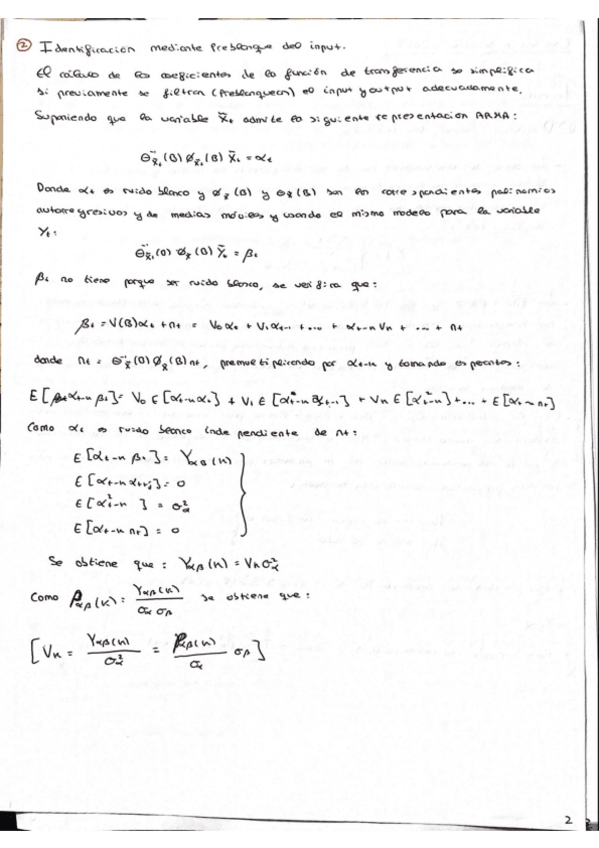 ② Identificación mediante Preblanqueo del input.
El cálculo de los coeficientes de la función de transferencia se simplifica
si previamente se filtran (preblanquean) el input y output adecuadamente.
Suponiendo que la variable X̃t admite la siguiente representación ARMA:
Θ⁻¹x̃(B) Øx̃(B) X̃t = αt
Donde αt es ruido blanco y Øx̃(B) y Θx̃(B) son los correspondientes polinomios
autorregresivos y de medias móviles y usando el mismo modelo para la variable
Yt:
Θ⁻¹x̃(B) Øx̃(B) Ỹt = βt
βt no tiene porque ser ruido blanco, se verifica que:
βt = V(B)αt + nt = V0αt + V1αt-1 + ... + αt-k Vk + ... + nt
donde nt = Θ⁻¹x̃(B) Øx̃(B) nt, premultiplicando por αt-k y tomando esperantes:
E[αt-k βt] = V0 E[αt-k αt] + V1 E[αt-k αt-1] + Vk E[α²t-k] + ... + E[αt-k nt]
Como αt es ruido blanco independiente de nt:
E[αt-k βt] = γαβ(k)
E[αt-k αt+j] = 0
E[α²t-k ] = σ²α
E[αt-k nt] = 0
Se obtiene que: γαβ(k) = Vk σ²α
Como ραβ(k) = γαβ(k) / σα σβ se obtiene que:
[Vk = γαβ(k) / σ²α = ραβ(k) / σα σβ]
2